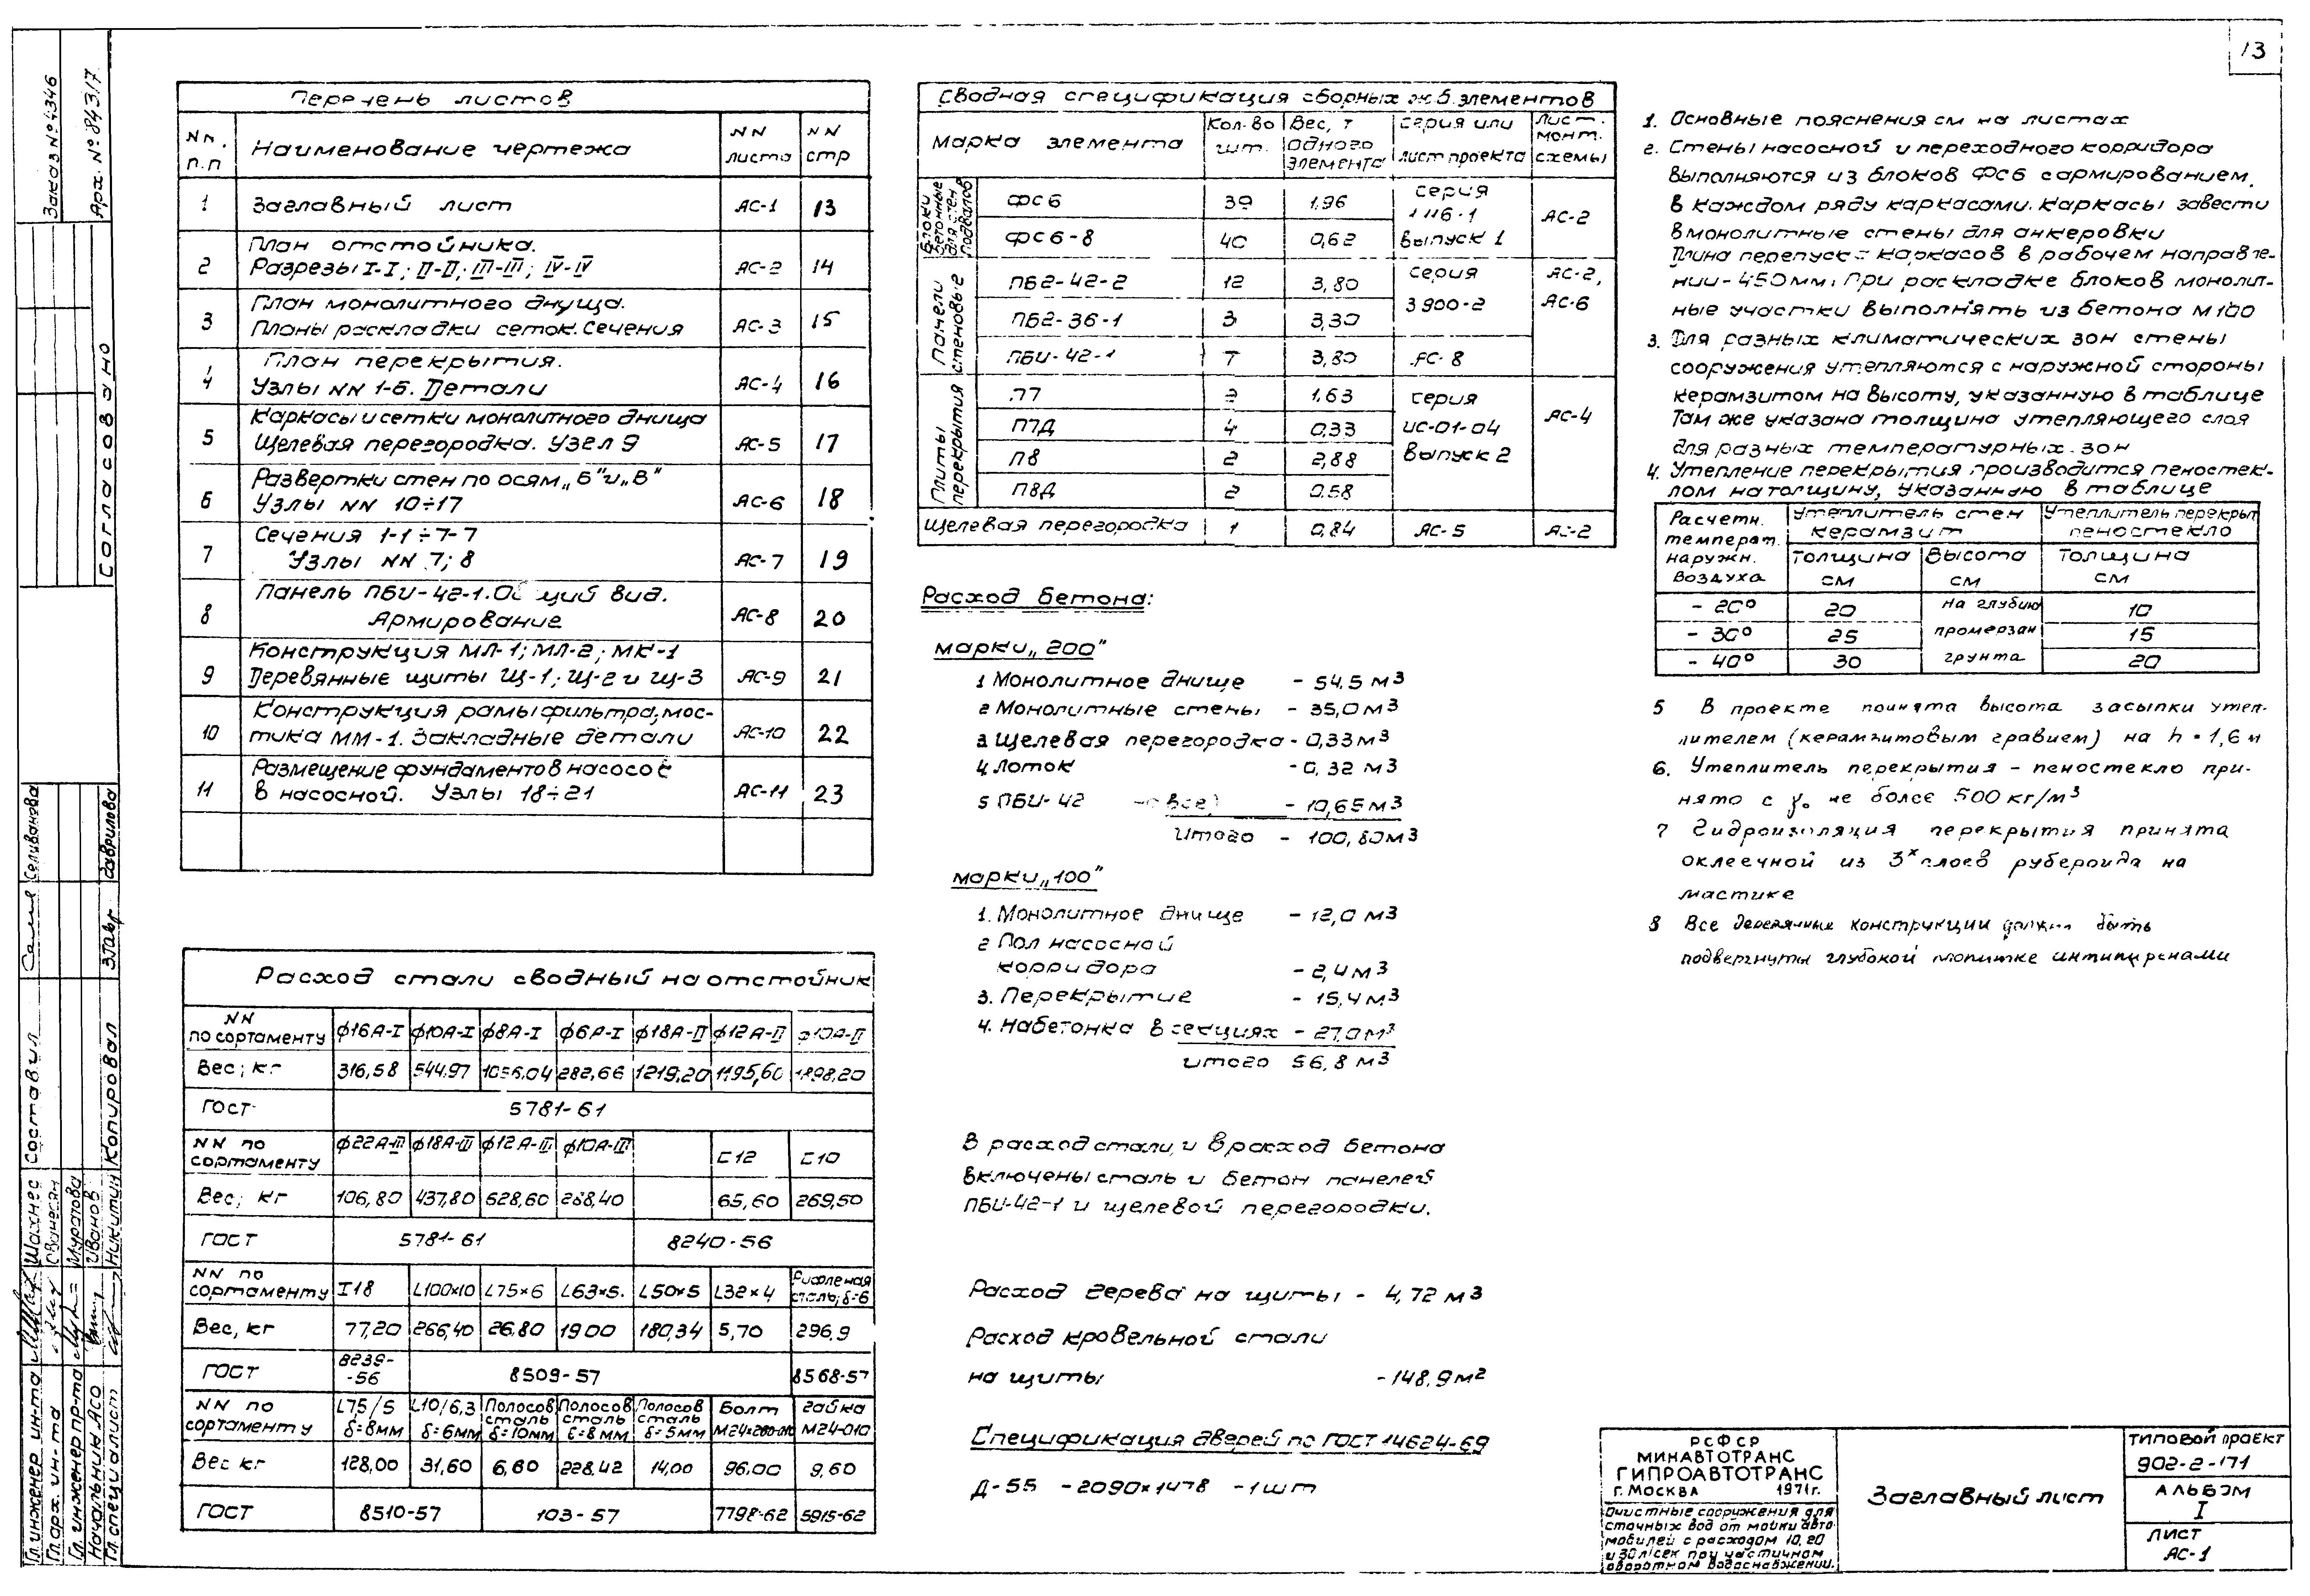 13
Заказ № 4346
Арх. № 84317
Согласовано
Перечень листов
NN п.п
Наименование чертежа
NN листа
NN стр
1 Заглавный лист АС-1 13
2 План отстойника. Разрезы I-I; II-II; III-III; IV-IV АС-2 14
3 План монолитного днища. Планы раскладки сеток. Сечения АС-3 15
4 План перекрытия. Узлы NN 1-6. Детали АС-4 16
5 Каркасы и сетки монолитного днища Щелевая перегородка. Узел 9 АС-5 17
6 Развертки стен по осям „Б" и „В" Узлы NN 10÷17 АС-6 18
7 Сечения 1-1÷7-7 Узлы NN 7; 8 АС-7 19
8 Панель ПБИ-42-1. Общий вид. Армирование АС-8 20
9 Конструкция МЛ-1; МЛ-2; МК-1 Деревянные щиты Щ-1; Щ-2 и Щ-3 АС-9 21
10 Конструкция рамы фильтра, мостика ММ-1. Закладные детали АС-10 22
11 Размещение фундаментов насосов в насосной. Узлы 18÷21 АС-11 23
Расход стали сводный на отстойник
NN по сортаменту ф16А-I ф10А-I ф8А-I ф6А-I ф18А-II ф12А-II ф10А-II
Вес; кг 316,58 544,97 1056,04 282,66 1219,20 1195,60 1898,20
ГОСТ 5781-61
NN по сортаменту ф22А-III ф18А-III ф12А-III ф10А-III С12 С10
Вес; кг 106,80 437,80 628,60 288,40 65,60 269,50
ГОСТ 5781-61 8240-56
NN по сортаменту I18 L100×10 L75×6 L63×5. L50×5 L32×4 Рифленая сталь; δ=6
Вес, кг 77,20 266,40 26,80 19.00 180,34 5,70 296,9
ГОСТ 8239-56 8509-57 8568-57
NN по сортаменту L75/5 δ=8мм L10/6,3 δ=6мм Полосов сталь δ=10мм Полосов сталь δ=8мм Полосов сталь δ=5мм Болт М24×280-010 Гайка М24-010
Вес кг 128,00 31,60 6,60 228,42 14,00 96,00 9,60
ГОСТ 8510-57 103-57 7798-62 5915-62
Сводная спецификация сборных ж.б. элементов
Марка элемента
Кол-во шт.
Вес, т одного элемента
серия или лист проекта
Лист. монт. схемы
Блоки бетонные для стен подвалов
ФС6 39 1,96 серия 1.116-1 выпуск 1 АС-2
ФС6-8 40 0,62
Панели стеновые
ПБ2-42-2 12 3,80 серия 3.900-2 АС-2, АС-6
ПБ2-36-1 3 3,30
ПБИ-42-1 7 3,80 АС-8
Плиты перекрытия
П7 2 1,63 серия ИС-01-04 Выпуск 2 АС-4
П7Д 4 0,33
П8 2 2,88
П8Д 2 0.58
Щелевая перегородка 1 0,84 АС-5 АС-2
Расход бетона:
марки „200"
1 Монолитное днище - 54.5 м3
2 Монолитные стены - 35,0 м3
3 Щелевая перегородка - 0,33 м3
4. Лоток - 0,32 м3
5 ПБИ-42 все) - 10,65 м3
Итого - 100,80 м3
марки „100"
1. Монолитное днище - 12,0 м3
2 Пол насосной
корридора - 2,4 м3
3. Перекрытие - 15,4 м3
4. Набетонка в секциях - 27,0 м3
итого 56,8 м3
В расход стали и в расход бетона
включены сталь и бетон панелей
ПБИ-42-1 и щелевой перегородки.
Расход дерева на щиты - 4,72 м3
Расход кровельной стали
на щиты - 148,9 м2
Спецификация дверей по ГОСТ 14624-69
Д-55 - 2090×1478 - 1 шт
1. Основные пояснения см на листах
2. Стены насосной и переходного корридора
выполняются из блоков ФС6 с армированием.
в каждом ряду каркасами. Каркасы завести
в монолитные стены для анкеровки
Длина перепуска каркасов в рабочем направле-
нии - 450мм. При раскладке блоков монолит-
ные участки выполнять из бетона М100
3. Для разных климатических зон стены
сооружения утепляются с наружной стороны
керамзитом на высоту, указанную в таблице
Там же указана толщина утепляющего слоя
для разных температурных. зон
4. Утепление перекрытия производится пеностек-
лом на толщину, указанную в таблице
Расчетн. температ. наружн. воздуха
Утеплитель стен керамзит
Утеплитель перекрыт пеностекло
Толщина см
Высота см
Толщина см
- 20° 20 на глубин 10
- 30° 25 промерзан 15
- 40° 30 грунта 20
5 В проекте принята высота засыпки утеп-
лителем (керамзитовым гравием) на h = 1,6 м
6. Утеплитель перекрытия - пеностекло при-
нято с γ₀ не более 500 кг/м3
7 Гидроизоляция перекрытия принята
оклеечной из 3х слоев рубероида на
мастике
8 Все деревянные конструкции должны быть
подвергнуты глубокой пропитке антипиренами
РСФСР
МИНАВТОТРАНС
ГИПРОАВТОТРАНС
г. МОСКВА 1971г.
Очистные сооружения для
сточных вод от мойки авто-
мобилей с расходом 10, 20
и 30 л/сек при частичном
оборотном водоснабжении.
Заглавный лист
ТИПОВОЙ ПРОЕКТ
902-2-171
АЛЬБОМ
I
ЛИСТ
АС-1
Гл. инженер ин-та Шахнес
Гл. арх. ин-та Сванесян
Гл. инженер пр-та Муратова
Начальник АСО Иванов
Гл. специалист Никитин
Составил Селиванова
Копировал Гаврилова